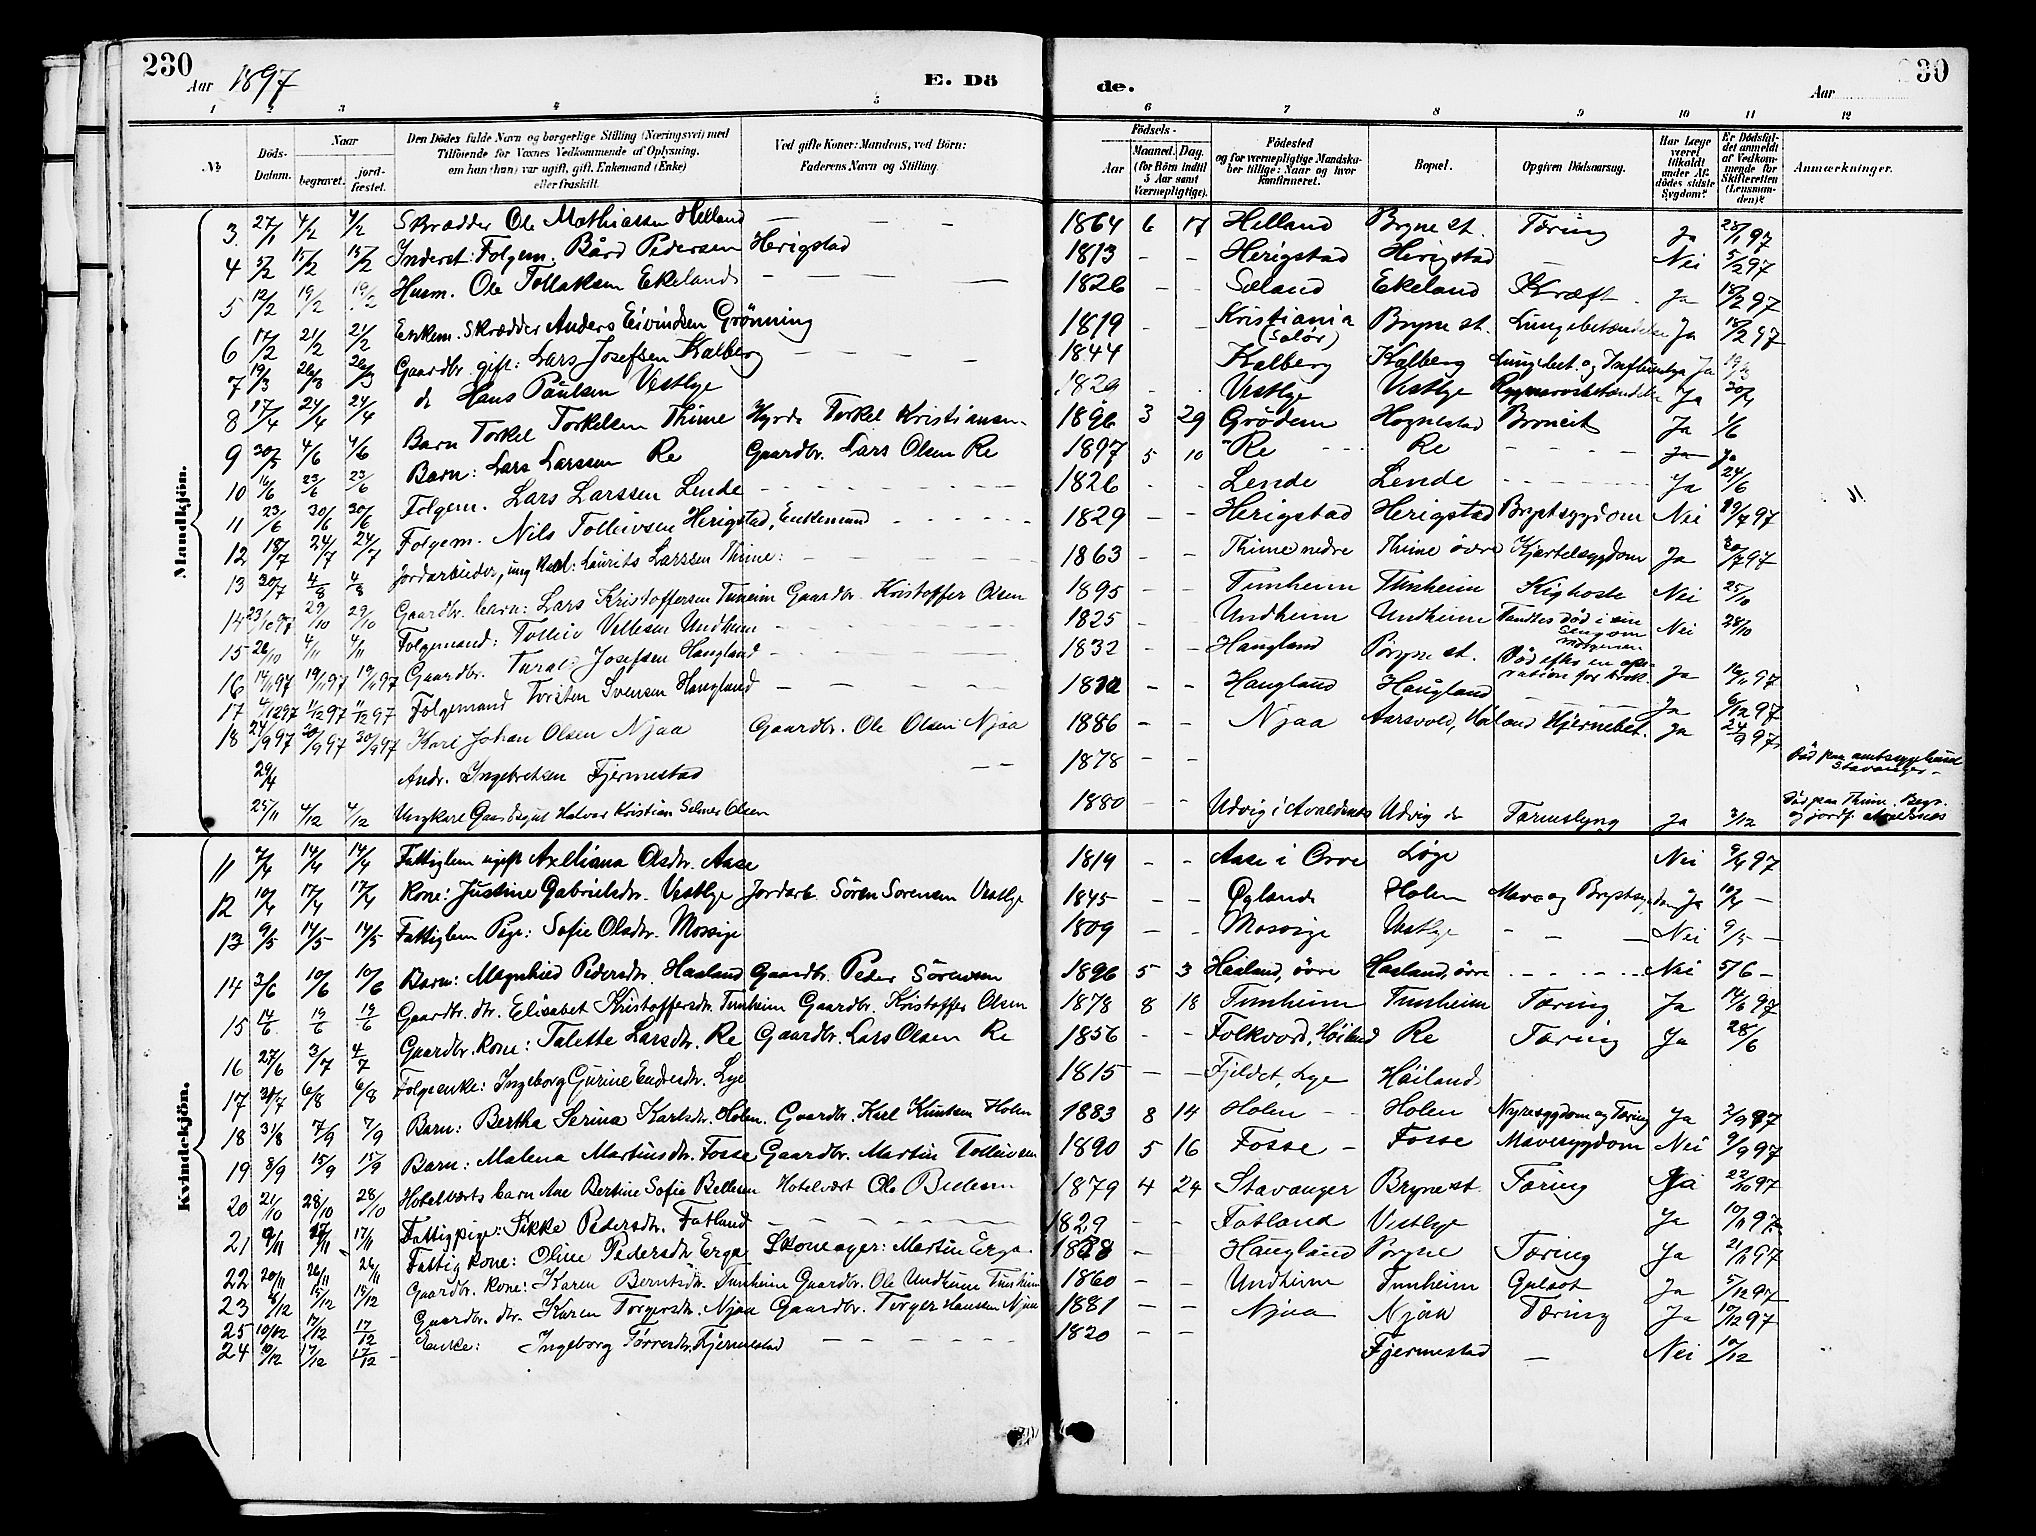 230
Aar 1897
E. Dö
de.
Aar
230
1 2 3 4 5 6 7 8 9 10 11 12
No. Döds-Datum. Naar begravet. jord-fæstet. Den Dödes fulde Navn og borgerlige Stilling (Næringsvei) med Tilföiende for Voxnes Vedkommende af Oplysning, om han (hun) var ugift, gift, Enkemand (Enke) eller fraskilt. Ved gifte Koner: Mandens, ved Börn: Faderens Navn og Stilling. Födsels- Aar Maaned. Dag. (for Börn indtil 5 Aar samt Værnepligtige). Födested og for værnepligtige Mandska-ber tillige: Naar og hvor konfirmeret. Bopæl. Opgiven Dödsaarsag. Har Læge været tilkaldt under Af-dödes sidste Sygdom? Er Dödsfal-det anmeldt af Vedkom-mende for Skifteretten (Lensman-den)? Anmærkninger.
Mandkjön.
3 27/1 4/2 4/2 Skrædder Ole Mathiassen Helland — — 1864 6 17 Helland Bryne st. Tæring Ja 28/1 97
4 5/2 15/2 15/2 Inderst: Folgem. Bård Pedersen Herigstad 1813 - - Herigstad Herigstad — Nei 5/2 97
5 12/2 19/2 19/2 Husm. Ole Tollaksen Ekeland — — — 1826 - - Sæland Ekeland Kræft Ja 18/2 97
6 17/2 21/2 21/2 Enkem. Skrædder Anders Eivindsen Grönning 1819 - - Kristiania (Solör) Bryne st. Lungebetændelse Ja 18/2 97
7 19/3 26/3 26/3 Gaardbr. gift: Lars Josefsen Kalberg — — — 1844 Kalberg Kalberg Lungebet. og Influentsa Ja
8 17/4 24/4 24/4 do Hans Paulsen Vestlye 1829 - - Vestlye Vestlye Ja 20/4
9 30/5 4/6 4/6 Barn Torkel Torkelsen Thime Hyrde Torkel Kristiansen 1896 3 29 Grödem Hognestad Bronkit Ja 1/6
10 16/6 23/6 23/6 Barn: Lars Larssen Re Gaardbr. Lars Olsen Re 1897 5 10 Re Re - - - Ja
11 23/6 30/6 30/6 Folgem. Lars Larssen Lende — — — 1826 - - Lende Lende - - - Ja 24/6
12 18/7 24/7 24/7 Folgem. Nils Tolleivsen Herigstad, Enkemand - - - 1829 - - Herigstad Herigstad Brystsygdom Nei 19/7 97
13 30/7 4/8 4/8 Jordarbeider, ung karl: Laurits Larssen Thime: - - - 1863 - - Thime nedre Thime övre Kjertelsygdom Ja 97
14 23/10 97 29/10 29/10 Gaardbr. barn: Lars Kristoffersen Tunheim Gaardbr. Kristoffer Olsen 1895 - - Tunheim Tunheim Kighoste Nei 25/10
15 26/10 4/11 4/11 Folgemand: Tolleiv Undheim - - - 1825 - - Undheim Undheim Fandtes död i sin seng om morgenen Nei 28/10
16 14/11 97 19/11 97 19/11 97 Gaardbr. Josefsen Haugland — — — 1832 Haugland Bryne st. Död efter en operation for brok Ja 16/11 97
17 4/12 97 11/12 97 11/12 97 Folgemand Torsten Svensen Haugland — — — - - Haugland Haugland — — Ja 6/12 97
18 24/9 97 30/9 97 30/9 97 Karl Johan Olsen Njaa Gaardbr. Ole Olsen Njaa 1886 - - Njaa Aarsvold, Höiland Hjernebet. Ja 24/9 97
29/4 Andr. Ingebretsen Fjermestad — — 1878 - - Död paa amtssygehuset Stavanger -
25/11 4/12 4/12 Ungkarl Halvor Kristian Selmer Olsen 1880 - - Udvig i Avaldsnes Udvig do Tarmslyng Ja 3/12 Död paa Thime. Begr. og jordf. Avaldsnes
Kvindekjön.
11 14/4 14/4 Fattiglem ugift Axeliana Olsdtr. Aase 1819 - - Aase i Orre Löge Nei 9/4 97
12 10/4 17/4 17/4 Kone: Justine Gabrielsdtr. Vestlye Jordarb. Sören Sorensen Vestlye 1845 - - Öyland Holen Mave og Brystsygdom Ja 10/4 —
13 9/5 14/5 14/5 Fattiglem Pige: Sofie Olsdtr. Mossige 1809 - - Mossige Vestlye - - - Nei 9/5 —
14 3/6 10/6 10/6 Barn: Magnhild Pedersdtr. Haaland Gaardbr. Peder Sörensen 1896 5 3 Haaland, övre Haaland, övre - - - Nei 5/6 —
15 14/6 19/6 19/6 Gaardbr. dtr. Elisabet Kristoffersdtr. Tunheim Gaardbr. Kristoffer Olsen 1878 8 18 Tunheim Tunheim Tæring Ja 14/6 97
16 27/6 3/7 4/7 Gaardbr. kone: Talette Larsdtr. Re Gaardbr. Lars Olsen Re 1856 - - Folkvord, Höiland Re Tæring Ja 28/6
17 31/7 6/8 6/8 Folgeenke: Ingeborg Gurine Endresdtr. Lye 1815 — — Fjeldet, Lye Höiland
18 31/8 7/9 7/9 Barn: Bertha Serina Karlsdtr. Holen. Gaardbr. Karl Knutsen Holen 1883 8 14 Holen - - Holen Nyresygdom og Tæring Ja 2/9 97
19 8/9 15/9 15/9 Barn: Malena Martinsdtr. Fosse Gaardbr. Martin Tolleivsen 1890 5 16 Fosse - Fosse Mavesygdom Nei 9/9 97
20 21/10 28/10 28/10 Hotelværts barn Ane Bertine Sofie Bellesen Hotelvært Ole Bellesen 1879 4 24 Stavanger Bryne st. Tæring Ja 22/10 97
21 9/11 17/11 17/11 Fattigpige: Sikke Pedersdtr. Fatland — — — 1829 - - Fatland Vestlye Ja 10/11 97
22 20/11 26/11 26/11 Fattig kone: Oline Pedersdtr Erga Skomager: Martin Erga. - Haugland Bryne Tæring Ja 97
23 8/12 15/12 15/12 Gaardbr. kone: Karen Berntsdtr. Tunheim Gaardbr. Ole Undheim Tunheim 1860 - - Undheim Tunheim Gulsot Ja 5/12 97
25 10/12 17/12 17/12 Gaardbr. dtr. Karen Torgersdtr. Njaa Gaardbr. Torger Hansen Njaa 1881 - - Njaa Njaa Tæring Ja 10/12 97
24 10/12 17/12 17/12 Enke: Ingeborg Törresdtr. Fjermestad — — — 1820 - - Fjermestad — Nei 10/12